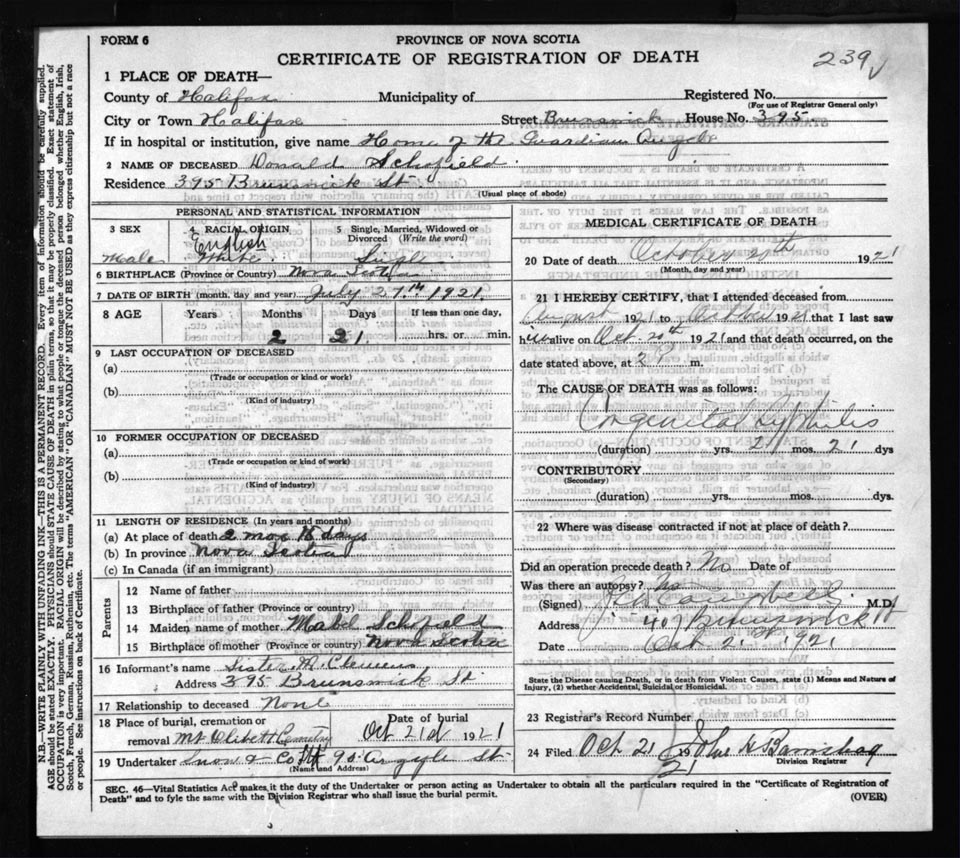 FORM 6
PROVINCE OF NOVA SCOTIA
CERTIFICATE OF REGISTRATION OF DEATH
239
1 PLACE OF DEATH—
County of Halifax Municipality of Registered No.
(For use of Registrar General only)
City or Town Halifax Street Brunswick House No. 395
If in hospital or institution, give name Home of the Guardian Angel
2 NAME OF DECEASED Donald Schofield
Residence 395 Brunswick St
(Usual place of abode)
PERSONAL AND STATISTICAL INFORMATION
3 SEX
4 RACIAL ORIGIN
5 Single, Married, Widowed or Divorced (Write the word)
English
Male White Single
6 BIRTHPLACE (Province or Country) Nova Scotia
7 DATE OF BIRTH (month, day and year) July 27th 1921
8 AGE Years Months Days If less than one day,
2 21 hrs. or min.
9 LAST OCCUPATION OF DECEASED
(a)
(Trade or occupation or kind or work)
(b)
(Kind of industry)
10 FORMER OCCUPATION OF DECEASED
(a)
(Trade or occupation or kind of work)
(b)
(Kind of industry)
11 LENGTH OF RESIDENCE (In years and months)
(a) At place of death 2 mos 15 days
(b) In province Nova Scotia
(c) In Canada (if an immigrant)
Parents
12 Name of father
13 Birthplace of father (Province or country)
14 Maiden name of mother Mabel Schofield
15 Birthplace of mother (Province or country) Nova Scotia
16 Informant's name Sister M Clemens
Address 395 Brunswick St.
17 Relationship to deceased None
18 Place of burial, cremation or removal Mt Olivett Cemetery
Date of burial Oct 21st 1921
19 Undertaker Snow & Co 90 Argyle St
(Name and Address)
MEDICAL CERTIFICATE OF DEATH
20 Date of death October 20th 1921
(Month, day and year)
21 I HEREBY CERTIFY, that I attended deceased from
August 1921 to October 1921 that I last saw
him alive on Oct 20th 1921 and that death occurred, on
date stated above, at m.
The CAUSE OF DEATH was as follows:
Congenital Syphilis
(duration) yrs. 2 mos. 21 dys
CONTRIBUTORY
(Secondary)
(duration) yrs. mos. dys.
22 Where was disease contracted if not at place of death?
Did an operation precede death? No Date of
Was there an autopsy? No
(Signed) Campbell M.D.
Address 407 Brunswick St
Date Oct 21st 1921
State the Disease causing Death, or in death from Violent Causes, state (1) Means and Nature of Injury, (2) whether Accidental, Suicidal or Homicidal.
23 Registrar's Record Number
24 Filed Oct. 21 1921 John
Division Registrar
SEC. 46—Vital Statistics Act makes it the duty of the Undertaker or person acting as Undertaker to obtain all the particulars required in the "Certificate of Registration of
Death" and to fyle the same with the Division Registrar who shall issue the burial permit.
(OVER)
N.B.—WRITE PLAINLY WITH UNFADING INK—THIS IS A PERMANENT RECORD. Every item of information should be carefully supplied.
AGE should be stated EXACTLY. PHYSICIANS should STATE CAUSE OF DEATH in plain terms, so that it may be properly classified. Exact statement of
OCCUPATION is very important. RACIAL ORIGIN will be described by stating to what people or tongue the deceased person belonged whether English, Irish,
Scotch, French, German, Russian, Ruthenian, etc. The terms "AMERICAN" or "CANADIAN" MUST NOT BE USED as they express citizenship but not a race
or people. See instructions on back of Certificate.